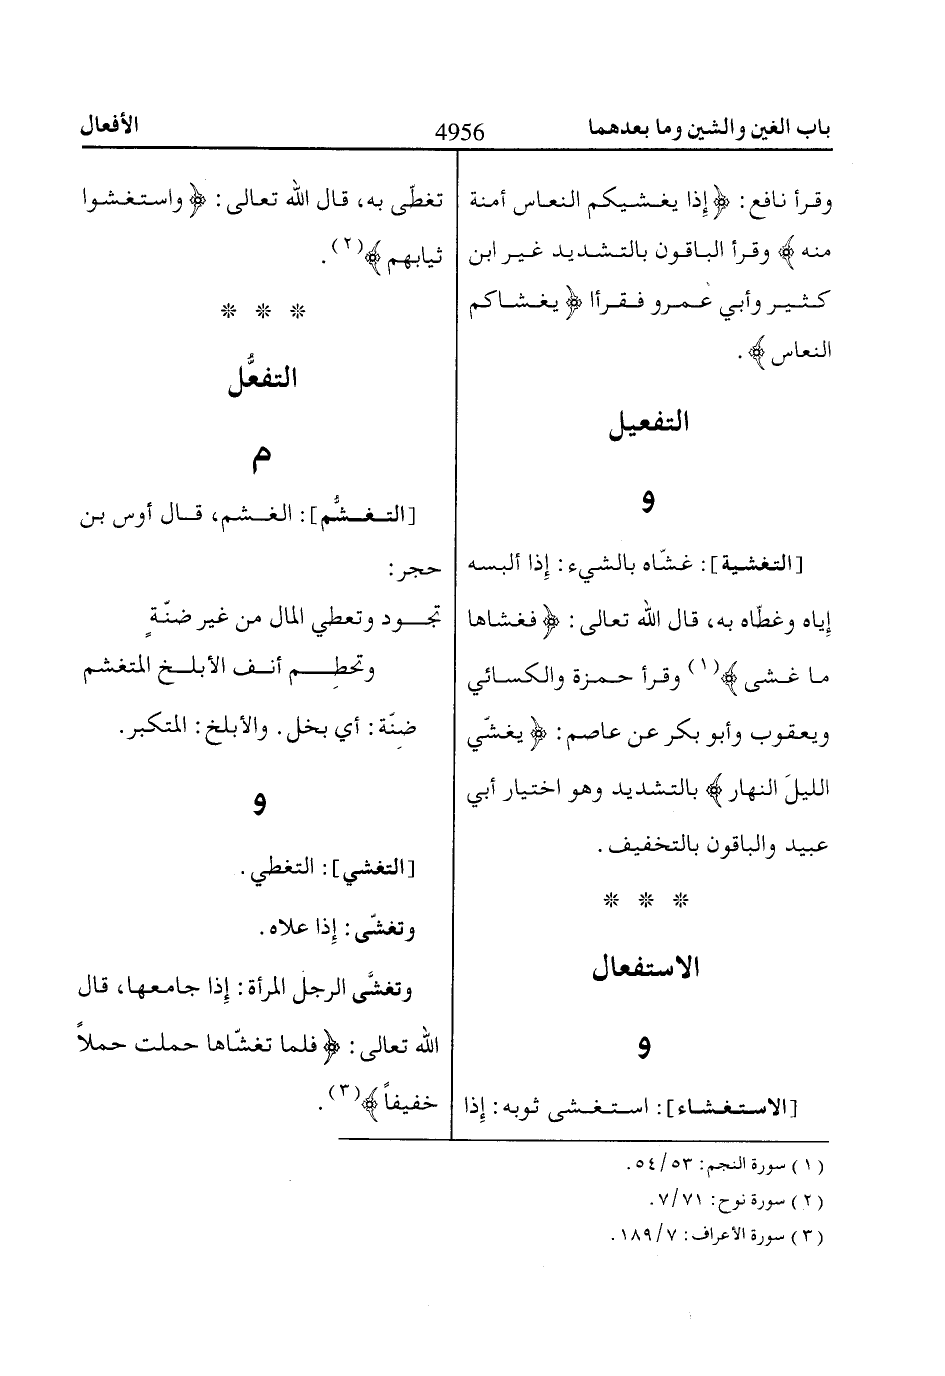 باب الغين والشين وما بعدهما
4956
الأفعال
وقرأ نافع: ﴿إِذا يغشيكم النعاس أمنة
منه﴾ وقرأ الباقون بالتشديد غير ابن
كثير وأبي عمرو فقرأا ﴿يغشاكم
النعاس﴾.
التفعيل
و
[التغشية]: غشّاه بالشيء: إِذا ألبسه
إِياه وغطّاه به، قال الله تعالى: ﴿فغشاها
ما غشى﴾(١) وقرأ حمزة والكسائي
ويعقوب وأبو بكر عن عاصم: ﴿يغشّي
الليلَ النهار﴾ بالتشديد وهو اختيار أبي
عبيد والباقون بالتخفيف.
* * *
الاستفعال
و
[الاستغشاء]: استغشى ثوبه: إِذا
تغطّى به، قال الله تعالى: ﴿واستغشوا
ثيابهم﴾(٢).
* * *
التفعُّل
م
[التغشُّم]: الغشم، قال أوس بن
حجر:
تجود وتعطي المال من غير ضنّةٍ
وتحطِم أنف الأبلخ المتغشم
ضِنّة: أي بخل. والأبلخ: المتكبر.
و
[التغشي]: التغطي.
وتغشّى: إِذا علاه.
وتغشَّى الرجل المرأة: إِذا جامعها، قال
الله تعالى: ﴿فلما تغشّاها حملت حملاً
خفيفاً﴾(٣).
(١) سورة النجم: ٥٣/ ٥٤.
(٢) سورة نوح: ٧١/ ٧.
(٣) سورة الأعراف: ٧/ ١٨٩.